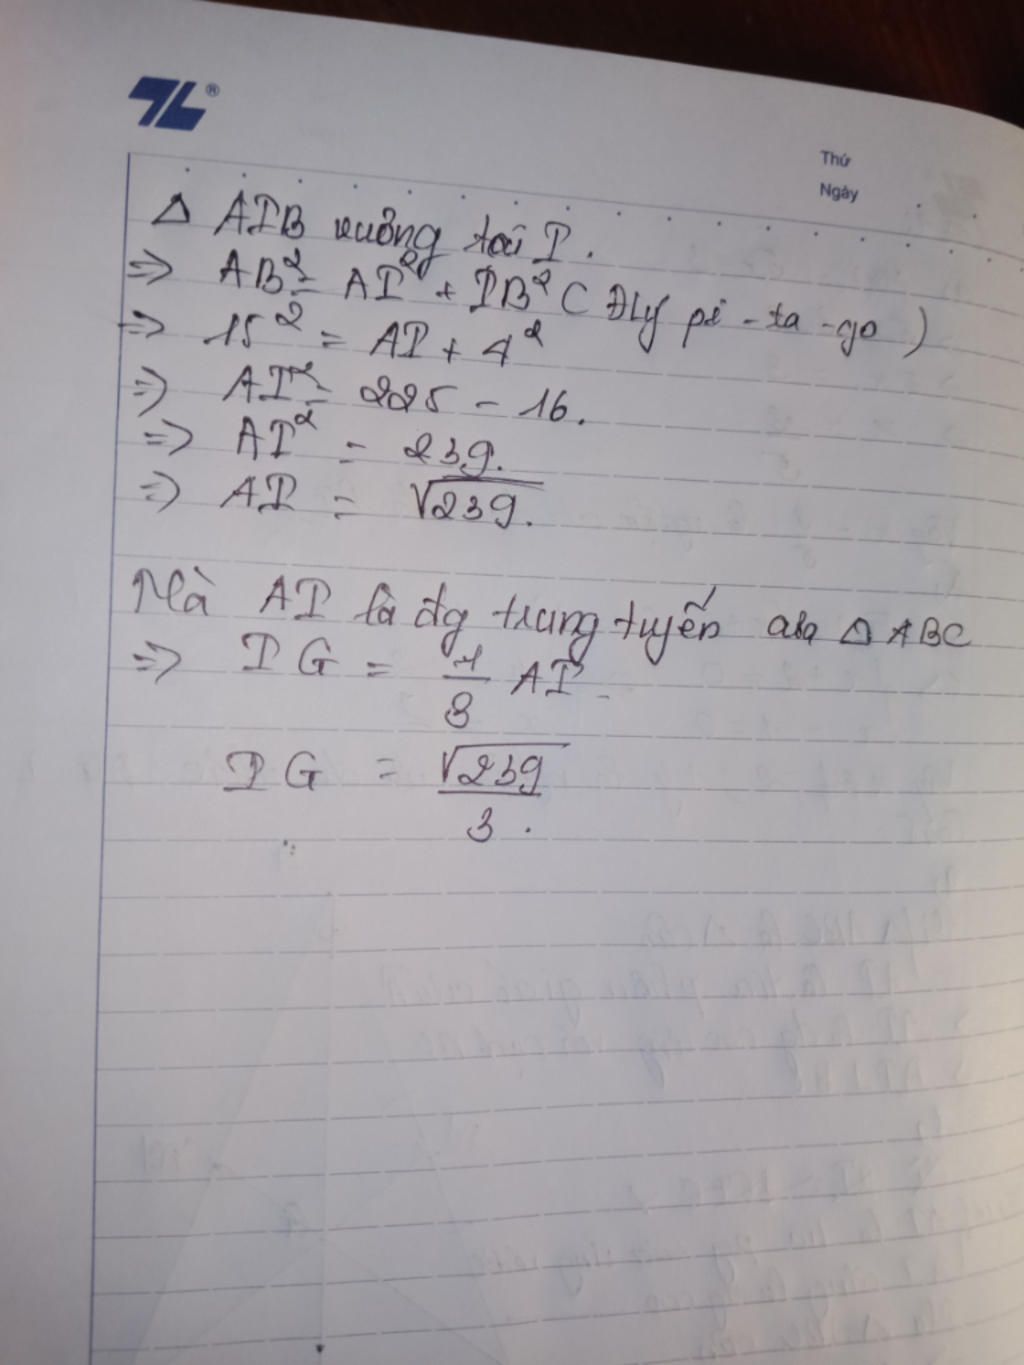 TL®
Thứ
Ngày
Δ AIB vuông tại I.
=> AB² = AI² + IB² ( Đlý pi-ta-go )
=> 15² = AI + 4²
=> AI² = 225 - 16.
=> AI² = 239.
=> AI = √239.
Mà AI là đg trung tuyến của Δ ABC
=> IG = 1/3 AI.
IG = √239/3.